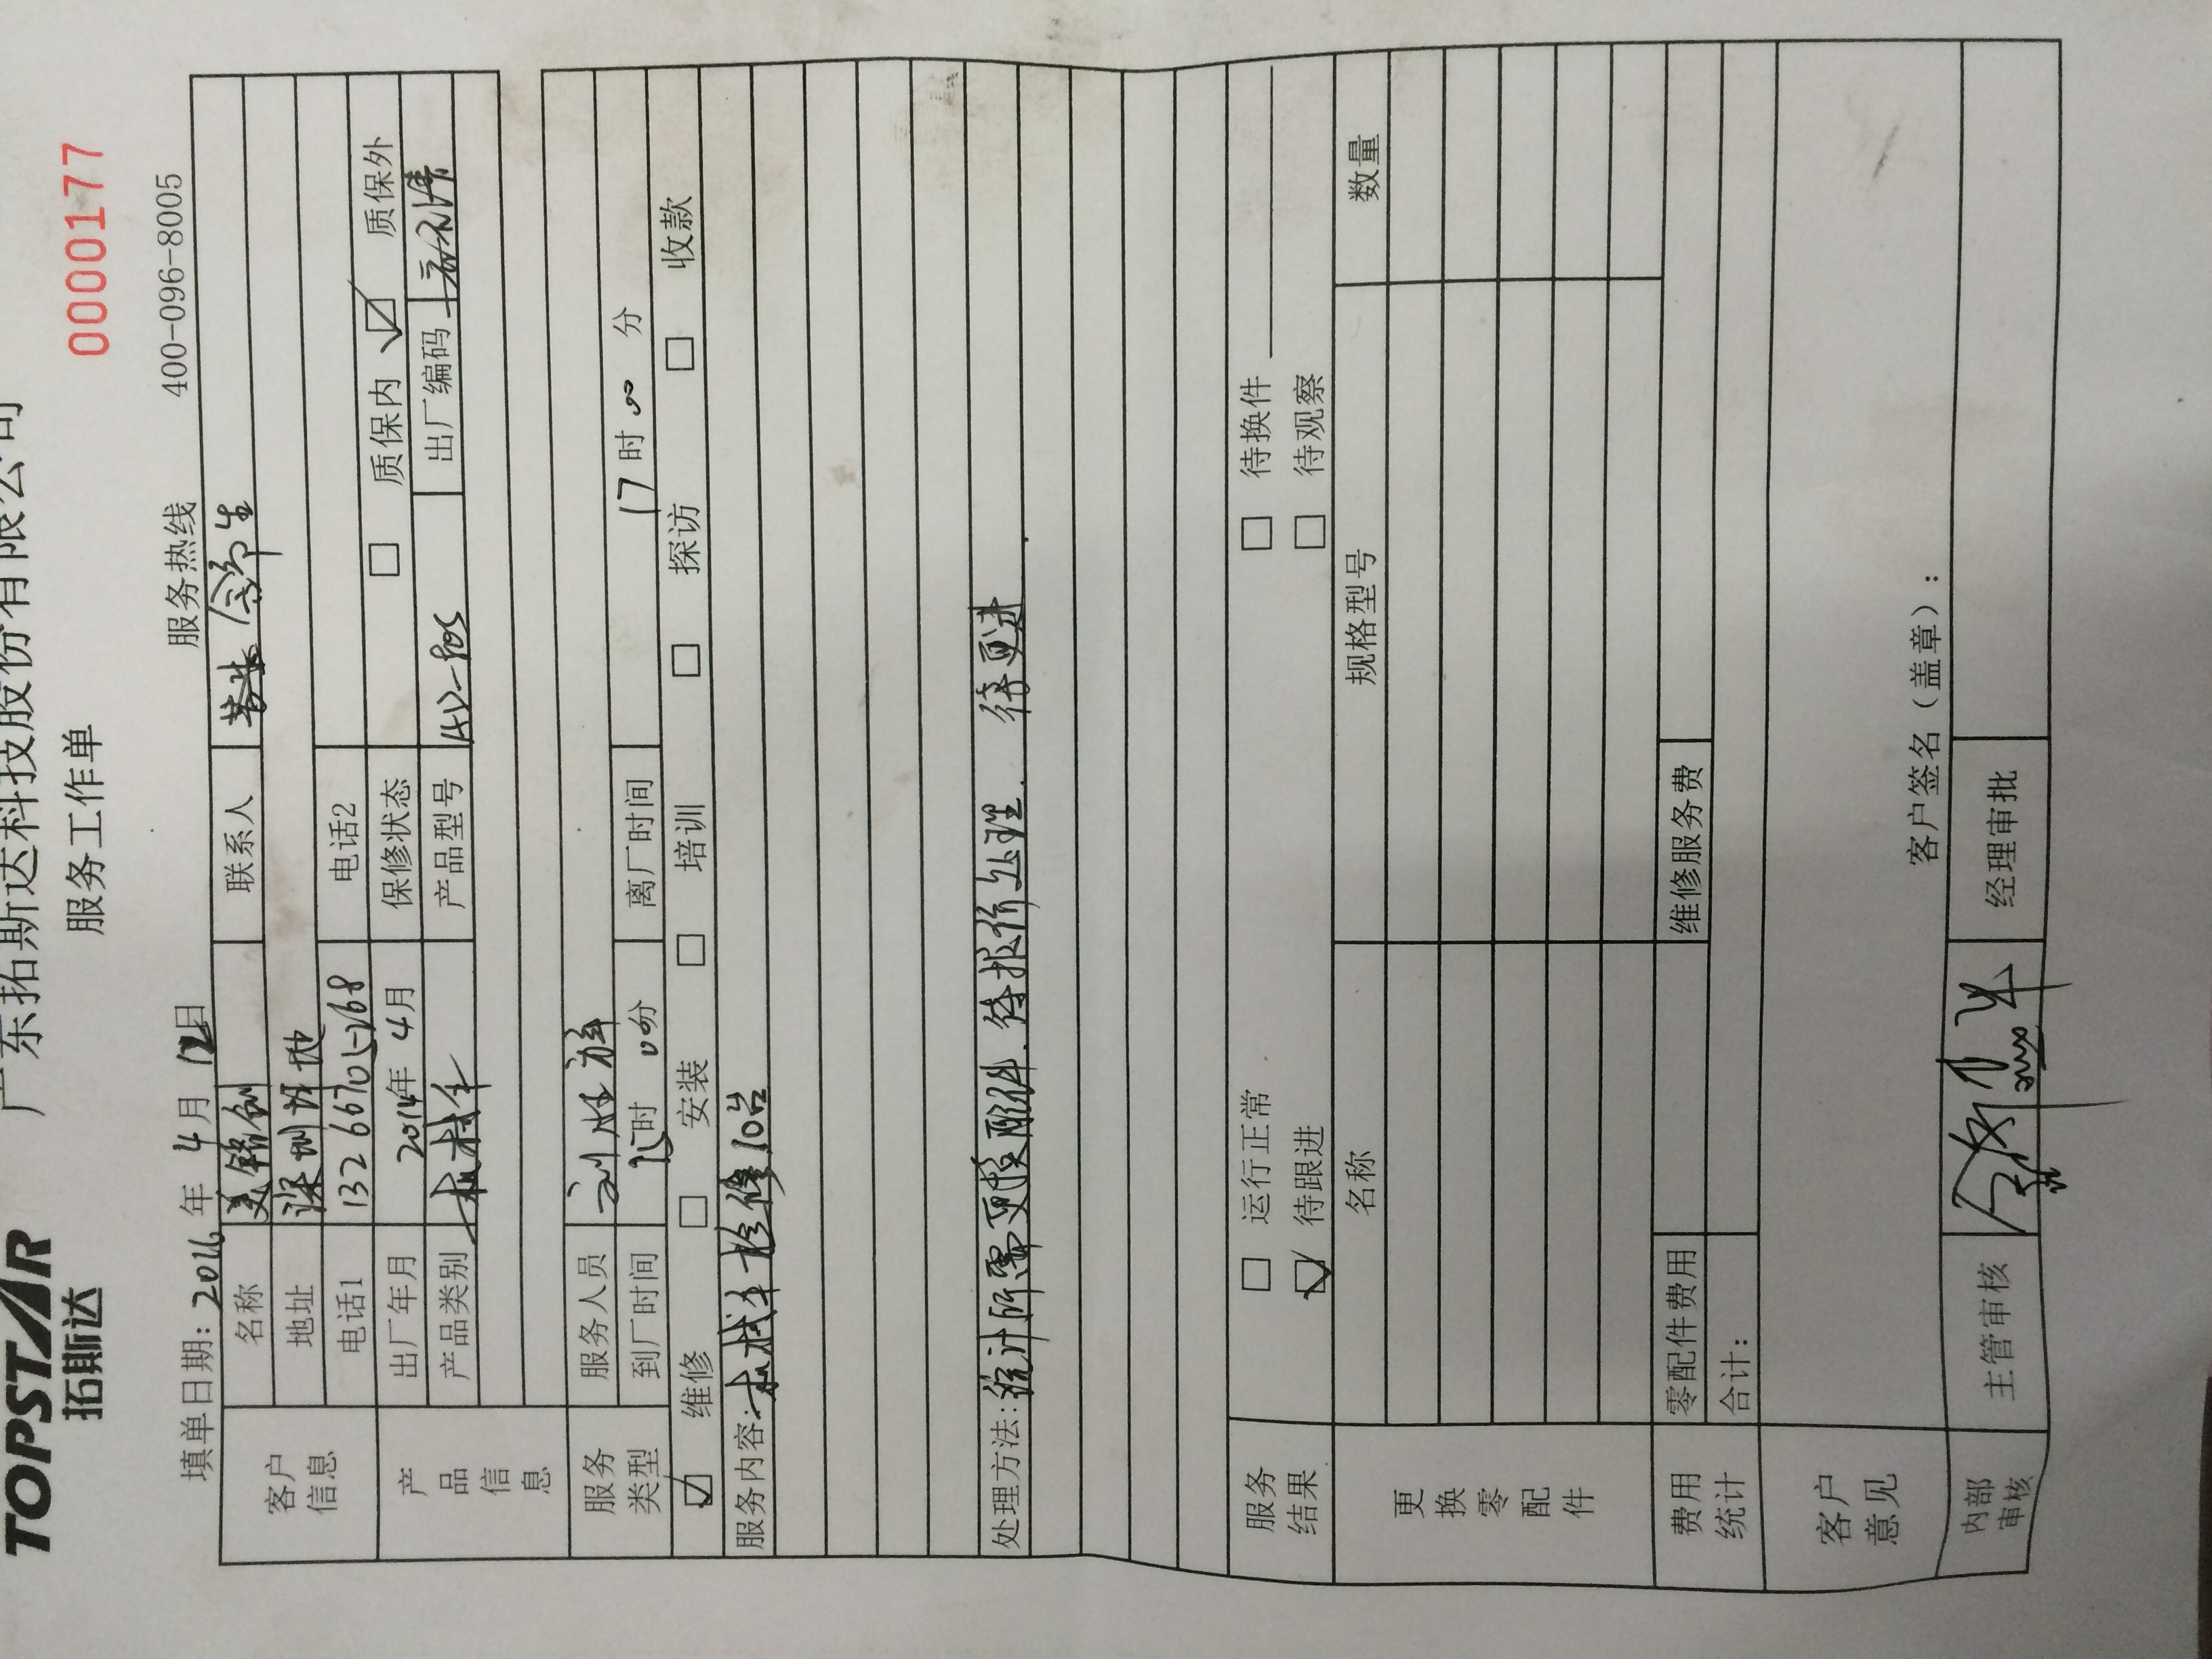 TOPSTAR
拓斯达
广东拓斯达科技股份有限公司
0000177
服务工作单
填单日期: 2016年 4月 12日 服务热线 400-096-8005
客户信息
名称 美 创 联系人 生
地址 深圳
电话1 132 6670 2168 电话2
产品信息
出厂年月 2014年 4月 保修状态 质保内 质保外
产品类别 机械手 产品型号 出厂编码
服务类型
服务人员 刘胜
到厂时间 15时 00分 离厂时间 17时 00分
维修 安装 培训 探访 收款
服务内容: 机械手检修10台
处理方法: 统计所需更换配件.待报价处理. 待更进
服务结果
运行正常 待换件
待跟进 待观察
更换零配件
名称 规格型号 数量
费用统计
零配件费用 维修服务费
合计:
客户意见
客户签名（盖章）:
内部审核 主管审核 经理审批